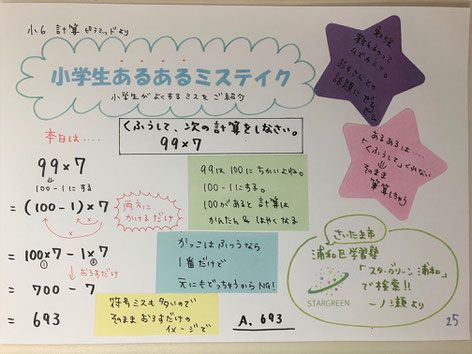 小6 計算ピラミッドより
小学生あるあるミステイク
小学生がよくするミスをご紹介
本日は‥‥
くふうして、次の計算をしなさい。
99×7
99×7
100-1にする
=(100-1)×7
両方に
かけるだけ
=100×7-1×7
① ②
おろすだけ
=700-7
=693
99は100にちかいよね。
100-1にする。
100があると計算は
かんたん&はやくなる
かっこはふつうなら
1番だけど
元にもどっちゃうからNG!
符号ミスも多いので
そのままおろすだけの
イメージで
A. 693
あるあるは‥‥
「くふうして」くれない
そのまま
筆算しちゃう
さいたま市
浦和区学習塾
「スタ・グリーン浦和」
で検索!!
STARGREEN
25